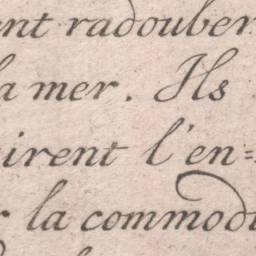 nt radouber
la mer. Ils
irent l'en=
r la commodi